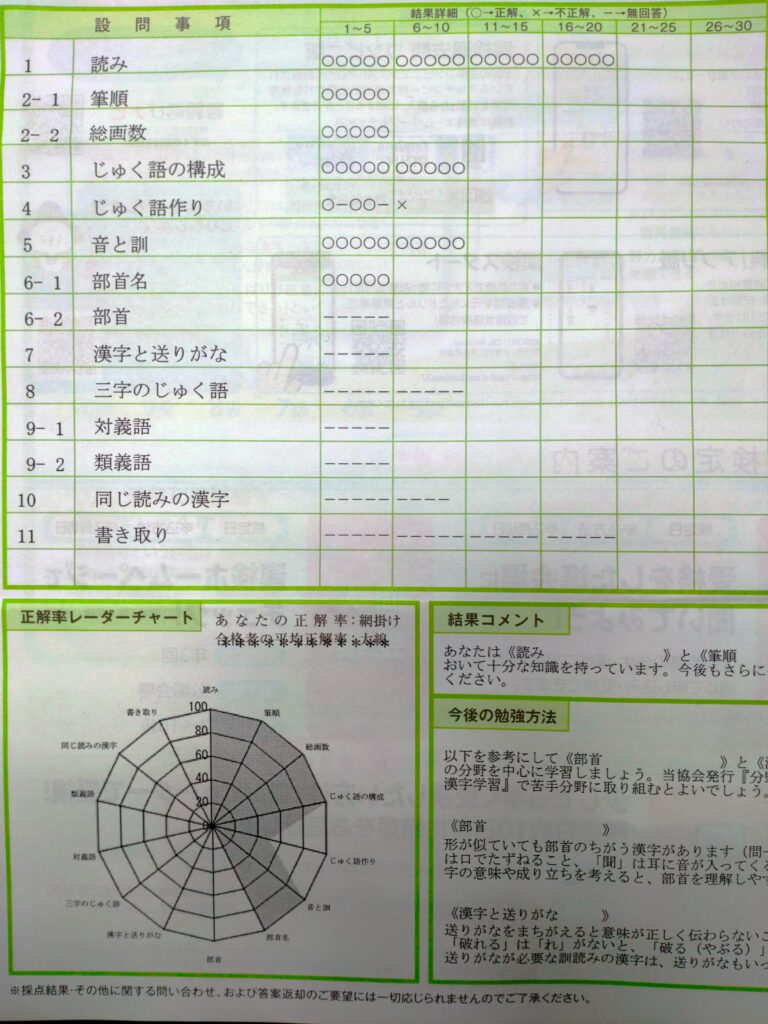 設問事項
結果詳細 (○→正解、×→不正解、ー→無回答)
1~5 6~10 11~15 16~20 21~25 26~30
1 読み ○○○○○ ○○○○○ ○○○○○ ○○○○○
2-1 筆順 ○○○○○
2-2 総画数 ○○○○○
3 じゅく語の構成 ○○○○○ ○○○○○
4 じゅく語作り ○-○○- ×
5 音と訓 ○○○○○ ○○○○○
6-1 部首名 ○○○○○
6-2 部首 -----
7 漢字と送りがな -----
8 三字のじゅく語 ----- -----
9-1 対義語 -----
9-2 類義語 -----
10 同じ読みの漢字 ----- ----
11 書き取り ----- ----- ----- -----
正解率レーダーチャート
あなたの正解率:網掛け
合格者の平均正解率:太線
読み
筆順
総画数
じゅく語の構成
じゅく語作り
音と訓
部首名
部首
漢字と送りがな
三字のじゅく語
対義語
類義語
同じ読みの漢字
書き取り
100
80
60
40
20
0
結果コメント
あなたは《読み 》と《筆順
おいて十分な知識を持っています。今後もさらに
ください。
今後の勉強方法
以下を参考にして《部首 》と《
の分野を中心に学習しましょう。当協会発行『分
漢字学習』で苦手分野に取り組むとよいでしょう。
《部首 》
形が似ていても部首のちがう漢字があります(問
は口でたずねること、「聞」は耳に音が入ってく
字の意味や成り立ちを考えると、部首を理解しや
《漢字と送りがな 》
送りがなをまちがえると意味が正しく伝わらないこ
「破れる」は「れ」がないと、「破る(やぶる)」
送りがなが必要な訓読みの漢字は、送りがなもい
※採点結果・その他に関する問い合わせ、および答案返却のご要望には一切応じられませんのでご了承ください。